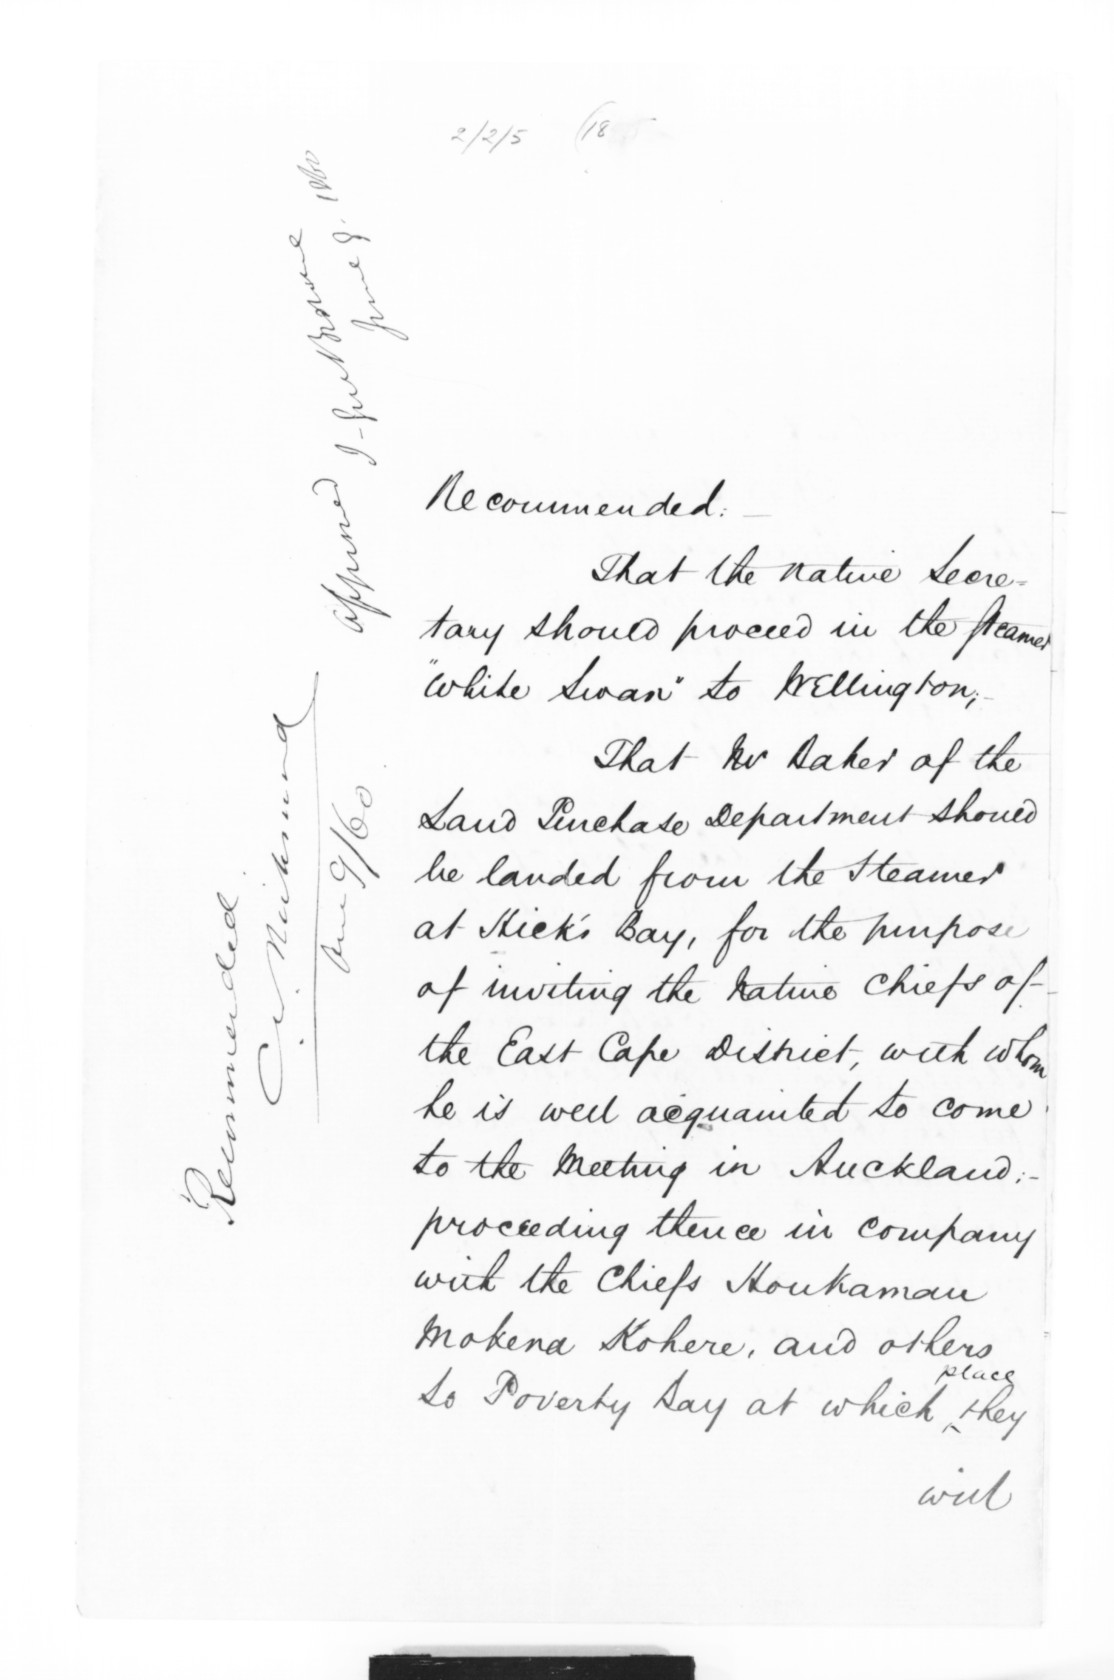 2/2/5 (18
Approved
T. Gore Browne
June 9. 1860
Recommended.
C. W. Richmond
June 9/60
Recommended: —
That the Native Secre=
tary should proceed in the Steamer
"White Swan" to Wellington;—
That Mr Baker of the
Land Purchase Department should
be landed from the Steamer
at Hick's Bay, for the purpose
of inviting the Native Chiefs of
the East Cape District, with whom
he is well acquainted to come
to the Meeting in Auckland;—
proceeding thence in company
with the Chiefs Houkamau
Mokena Kohere, and others
to Poverty Bay at which place they
will